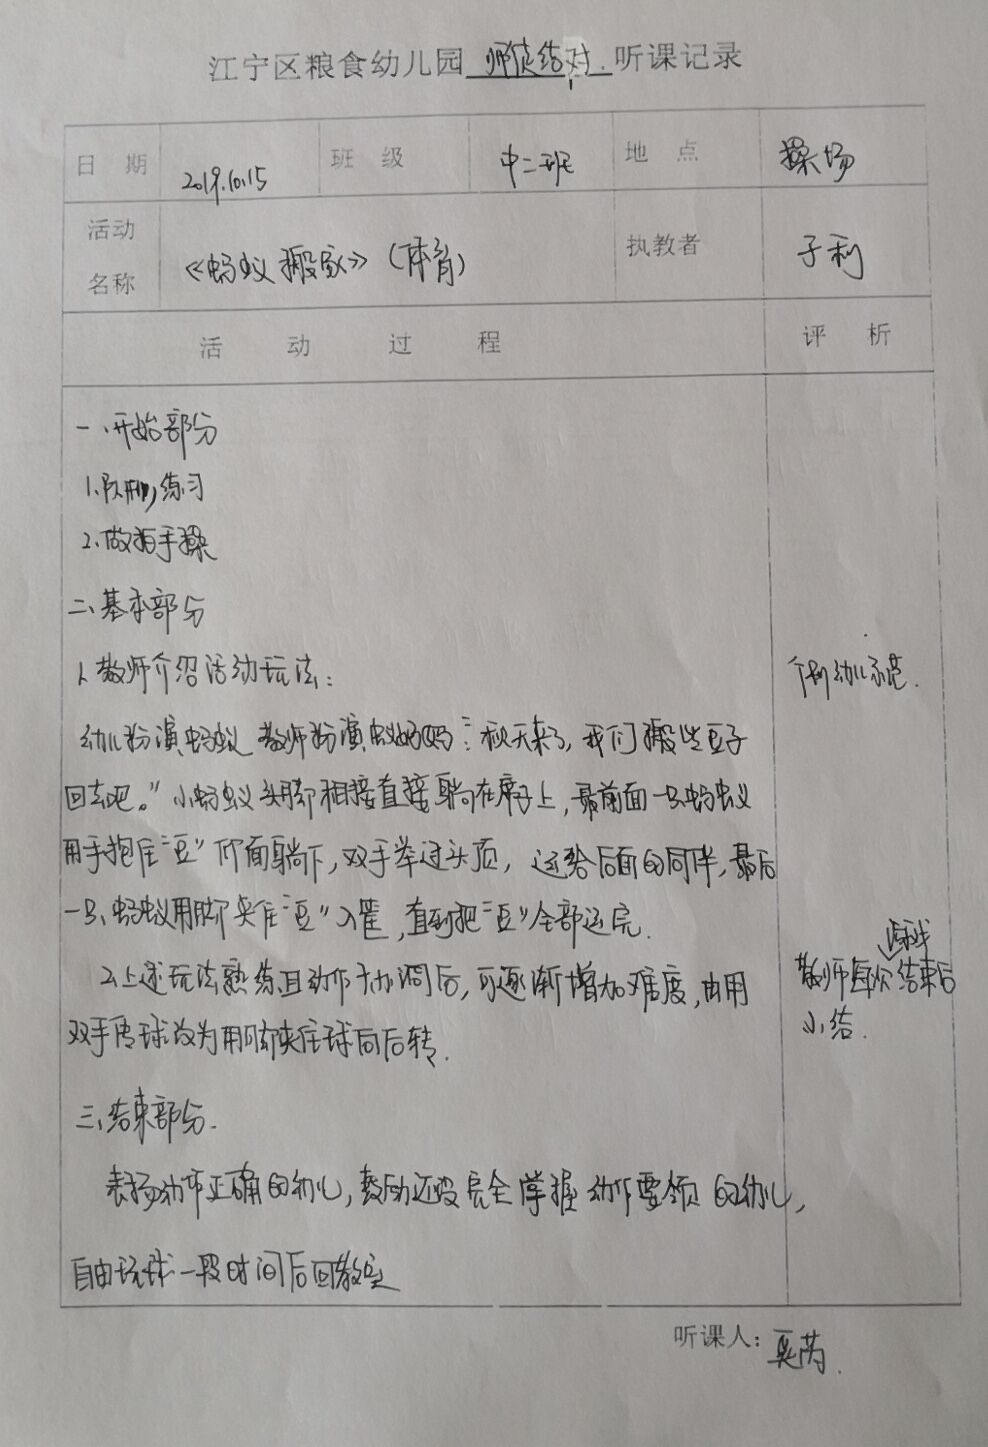 江宁区粮食幼儿园 师徒结对 听课记录
日 期 2019.10.15 班 级 中二班 地 点 操场
活动名称 《蚂蚁搬家》(体育) 执教者 子利
活 动 过 程 评 析
一、开始部分
1.队形练习
2.做拍手操
二、基本部分
1.教师介绍活动玩法: 个别幼儿示范.
幼儿扮演蚂蚁 教师扮演蚁妈妈:"秋天来了,我们搬些豆子
回去吧。"小蚂蚁头脚相接直接躺在席子上,最前面一只蚂蚁
用手抱住"豆"仰面躺下,双手举过头顶,运给后面的同伴,最后
一只蚂蚁用脚夹住"豆"入筐,直到把"豆"全部运完.
2.上述玩法熟练且动作协调后,可逐渐增加难度,由用
双手传球改为用脚夹住球向后转.
教师每次游戏结束后
小结.
三、结束部分.
表扬动作正确的幼儿,鼓励还没完全掌握动作要领的幼儿,
自由玩球一段时间后回教室
听课人: 芮.